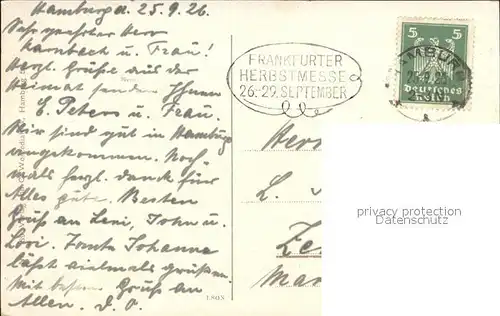 Hamburg d. 25.9.26.
Sehr geehrter Herr
Karnbeck u. Frau!
Herzl. Grüße aus der
Heimat senden Ihnen
E. Peters u. Frau.
Wir sind gut in Hamburg
angekommen. Noch-
mals herzl. dank für
Alles gute. Besten
Gruß an Leni, John u.
Lori. Tante Johanna
läßt vielmals grüßen.
Mit besten Gruß an
Allen. D. O.
FRANKFURTER
HERBSTMESSE
26.-29. SEPTEMBER
5 5
Deutsches
Reich
Herr
L. v
Ze
Mar
privacy protection
Datenschutz
1.80.S